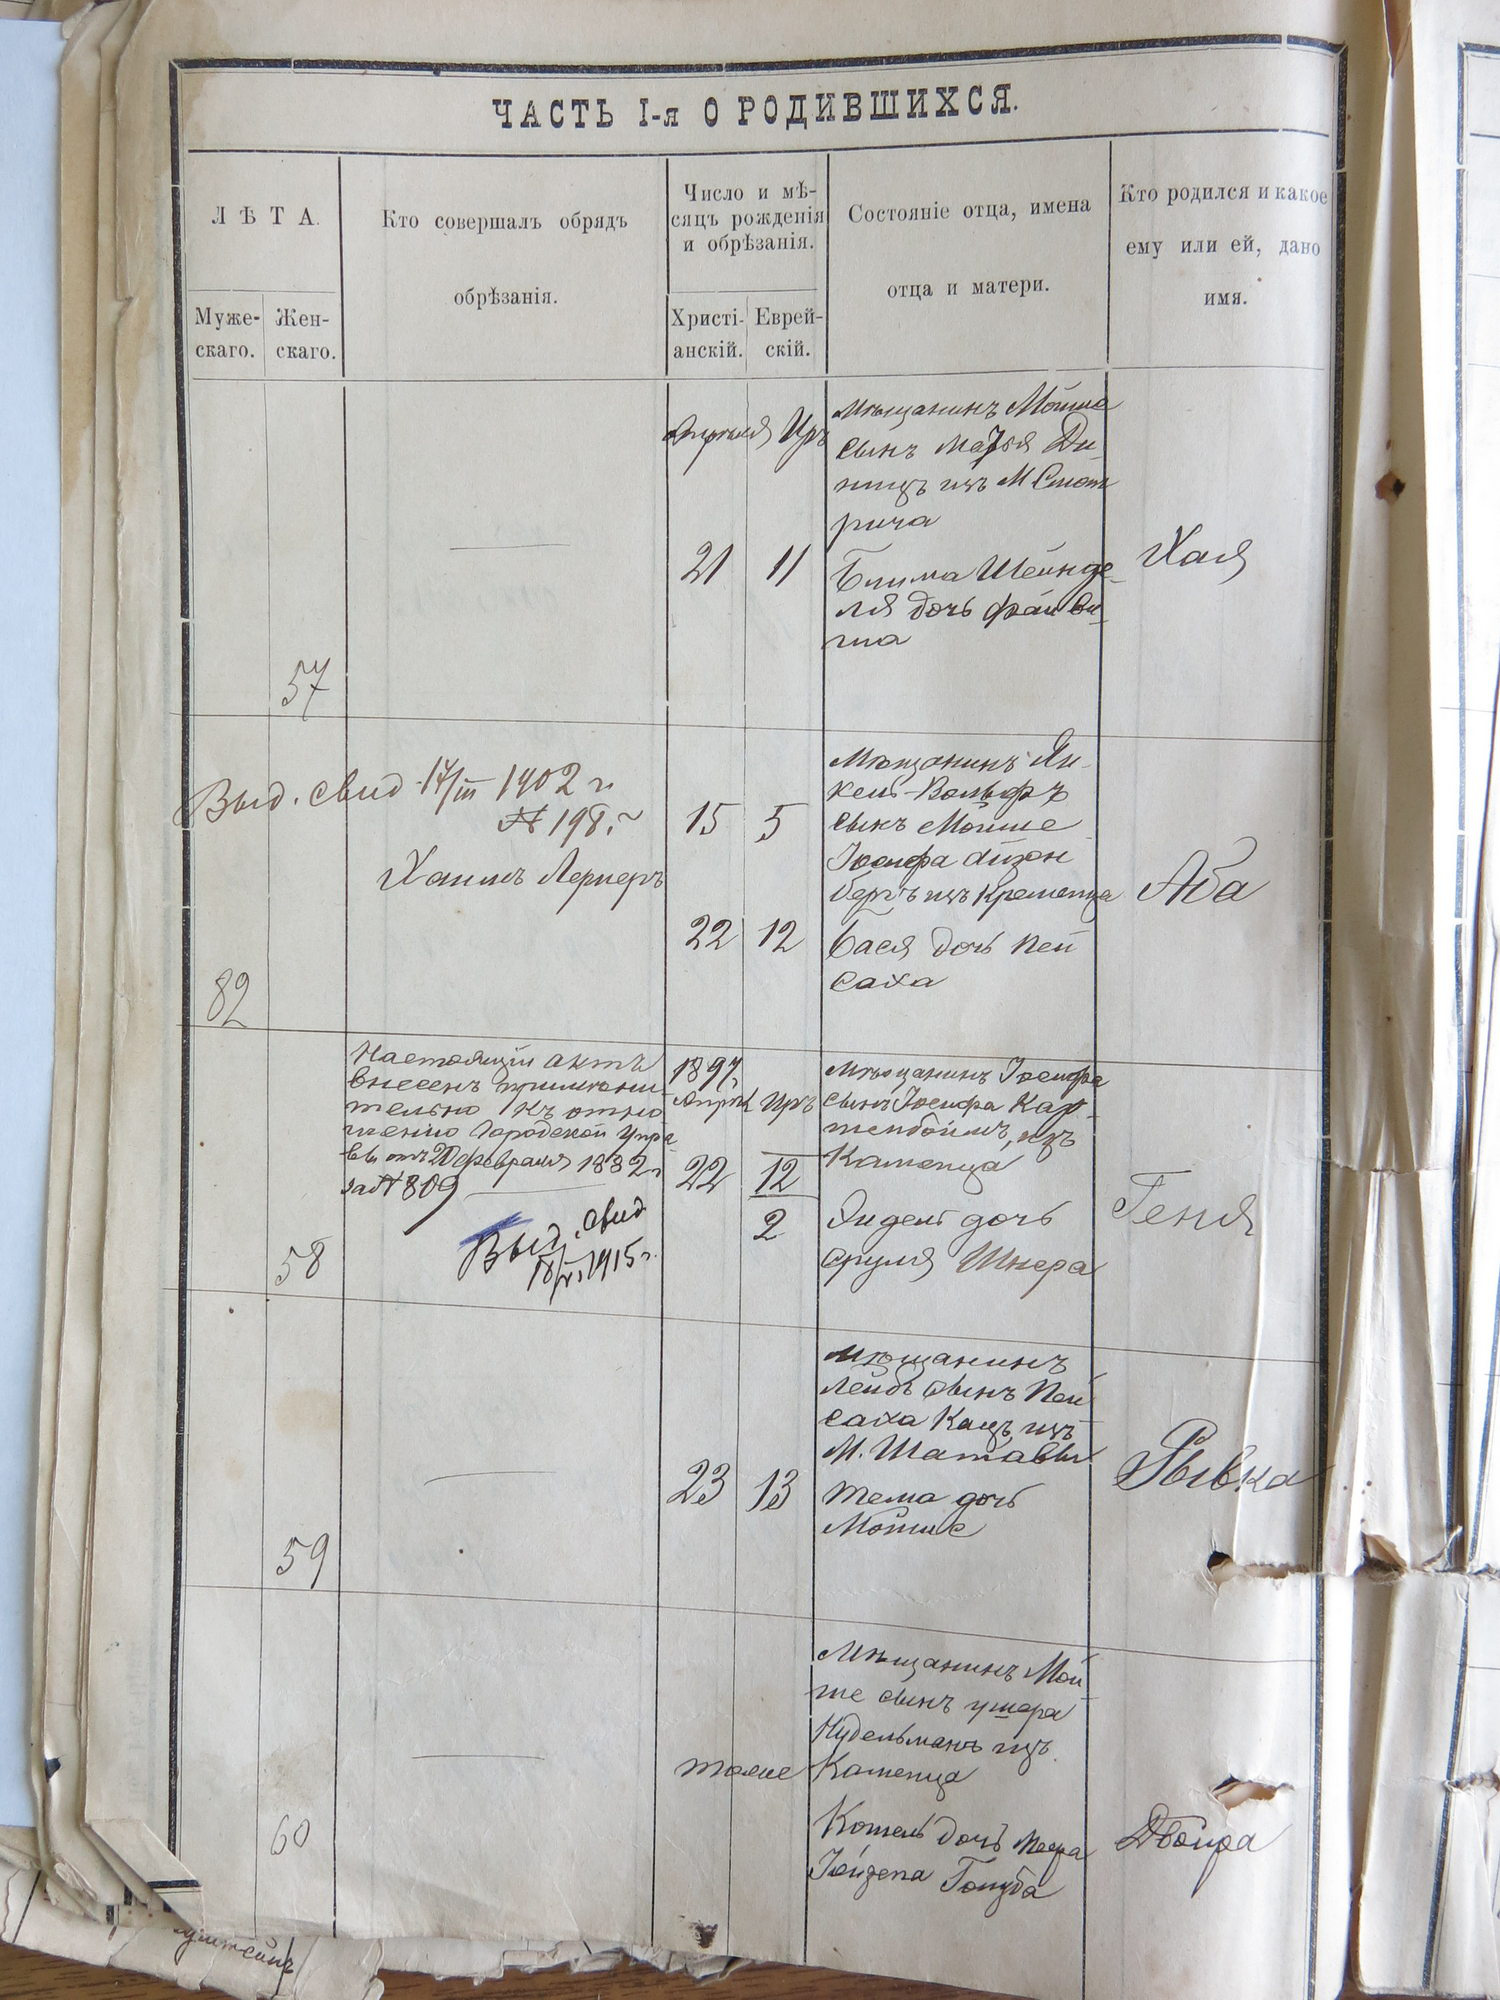 ЧАСТЬ I-я О РОДИВШИХСЯ.
ЛѢТА.
Муже-
скаго.
Жен-
скаго.
Кто совершалъ обрядъ
обрѣзанія.
Число и мѣ-
сяцъ рожденія
и обрѣзанія.
Христі-
анскій.
Еврей-
скій.
Состояніе отца, имена
отца и матери.
Кто родился и какое
ему или ей, дано
имя.
57
Апрѣля Иръ
21 11
Мѣщанинъ Мойша
сынъ
изъ М Смот
рича
Блима Шейнде-
ля дочь Фаиви-
ша
Хая
82
Выд. свид. 17/III 1902 г.
№ 198.
Хаимъ Лернеръ
15 5
22 12
Мѣщанинъ Ян-
кель-Вольфъ
сынъ Мойше
Іосифа Айзен
бергъ изъ Кременца
Бася дочь Пей
саха
Аба
58
Настоящій актъ
внесенъ примѣни-
тельно къ отно
шенію Городской Упра
вы отъ 20 февраля 1882 г.
за № 809
Выд. свид
1915 г.
1897 г.
Апрѣл Иръ
22 12
2
Мѣщанинъ Іосифа
сынъ Іосифа Кар-
тенбоймъ, изъ
Каменца
Эндель дочь
Сруля Шнера
Геня
59
23 13
Мѣщанинъ
Лейбъ сынъ Пей
саха Кацъ изъ
М. Шатавы
Тема дочь
Мойше
Рывка
60
тоже
Мѣщанинъ Мой-
ше сынъ Ушера
Нудельманъ изъ
Каменца
дочь Меера
Голуба
Двойра